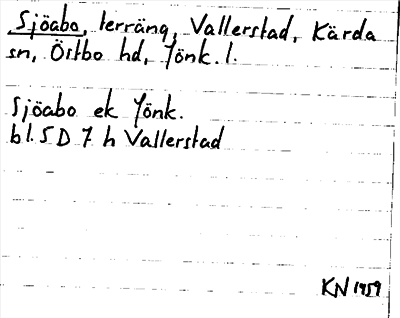 Sjöabo, terräng, Vallerstad, Kärda
sn, Östbo hd, Jönk. l.
Sjöabo ek Jönk.
bl. 5 D 7 h Vallerstad
KN 1959